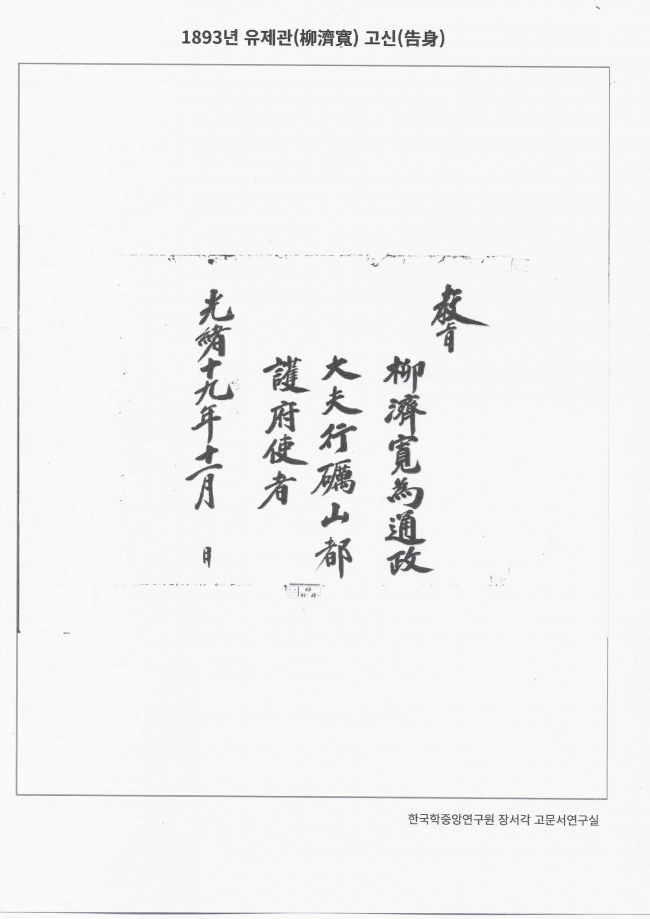 1893년 유제관(柳濟寬) 고신(告身)
敎旨
柳濟寬爲通政
大夫行礪山都
護府使者
光緖十九年十一月 日
한국학중앙연구원 장서각 고문서연구실